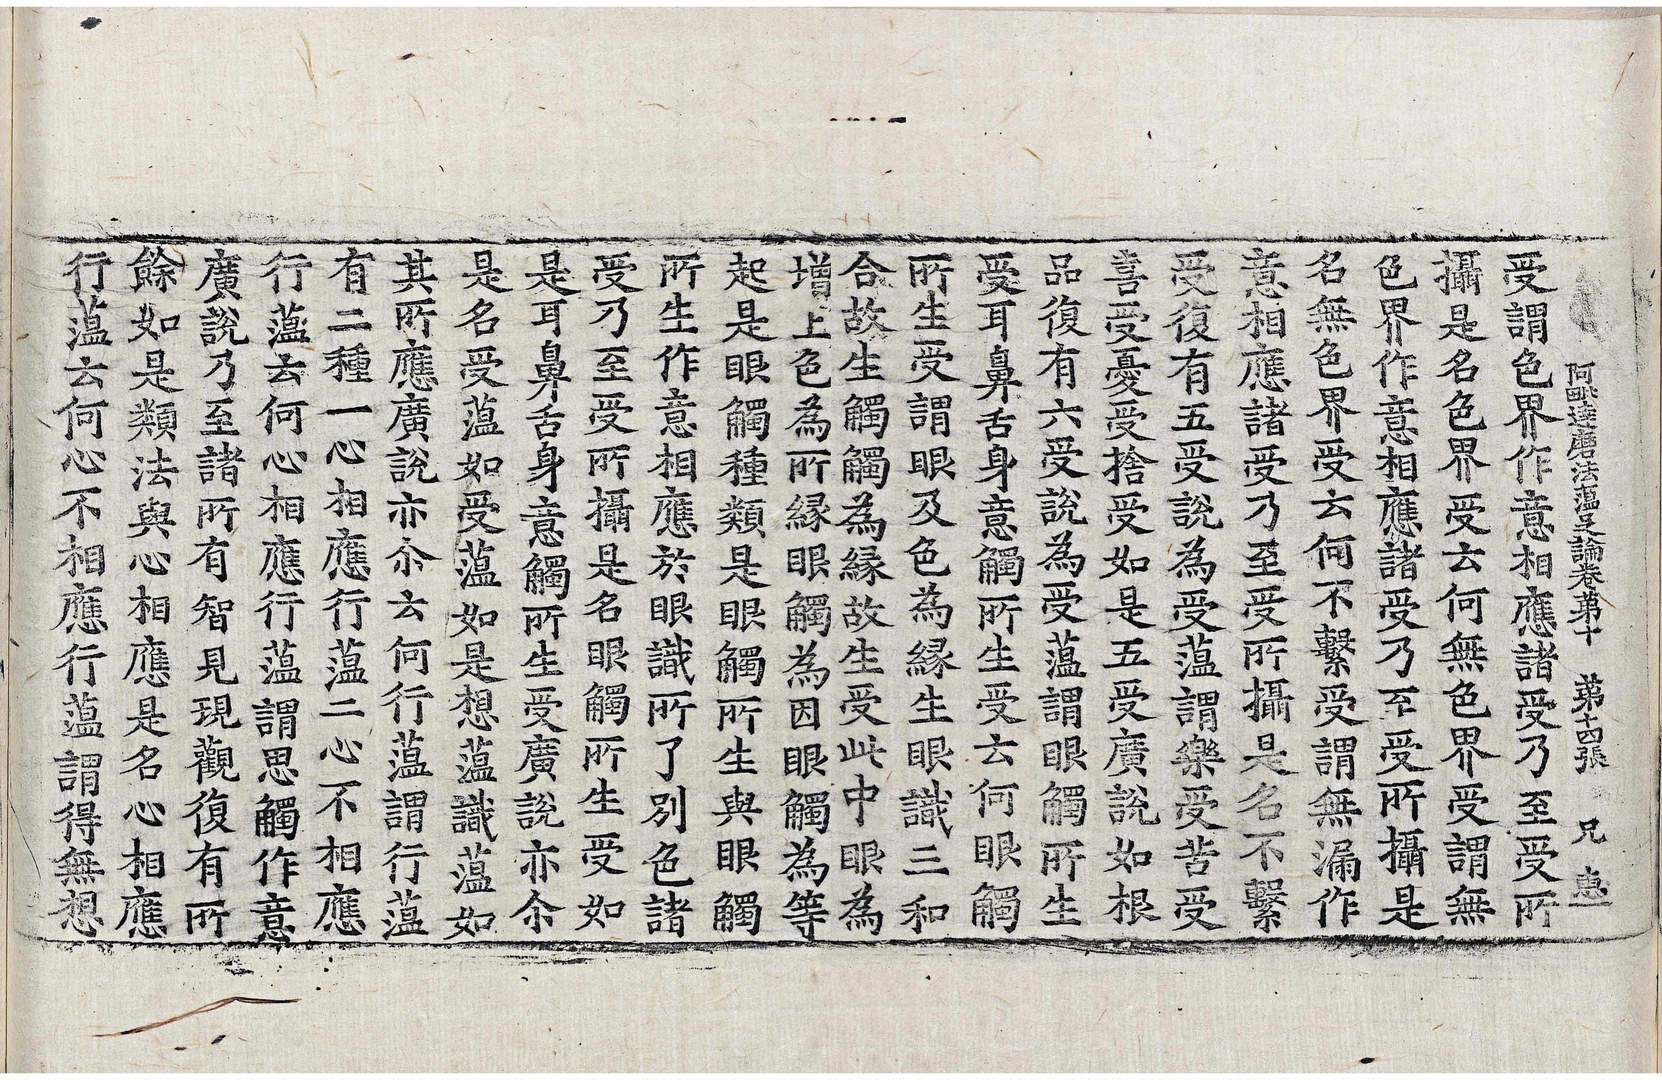 阿毗達磨法蕴足論卷第十 第十四張 兄 惠一
受謂色界作意相應諸受乃至受所
攝是名色界受云何無色界受謂無
色界作意相應諸受乃至受所攝是
名無色界受云何不繫受謂無漏作
意相應諸受乃至受所攝是名不繫
受復有五受說為受蕰謂樂受苦受
喜受憂受捨受如是五受廣說如根
品復有六受說為受蕰謂眼觸所生
受耳鼻舌身意觸所生受云何眼觸
所生受謂眼及色為緣生眼識三和
合故生觸觸為緣故生受此中眼為
增上色為所緣眼觸為因眼觸為等
起是眼觸種類是眼觸所生與眼觸
所生作意相應於眼識所了別色諸
受乃至受所攝是名眼觸所生受如
是耳鼻舌身意觸所生受廣說亦尒
是名受蕰如受蕰如是想蕰識蕰如
其所應廣說亦尒云何行蕰謂行蕰
有二種一心相應行蕰二心不相應
行蕰云何心相應行蕰謂思觸作意
廣說乃至諸所有智見現觀復有所
餘如是類法與心相應是名心相應
行蕰云何心不相應行蕰謂得無想